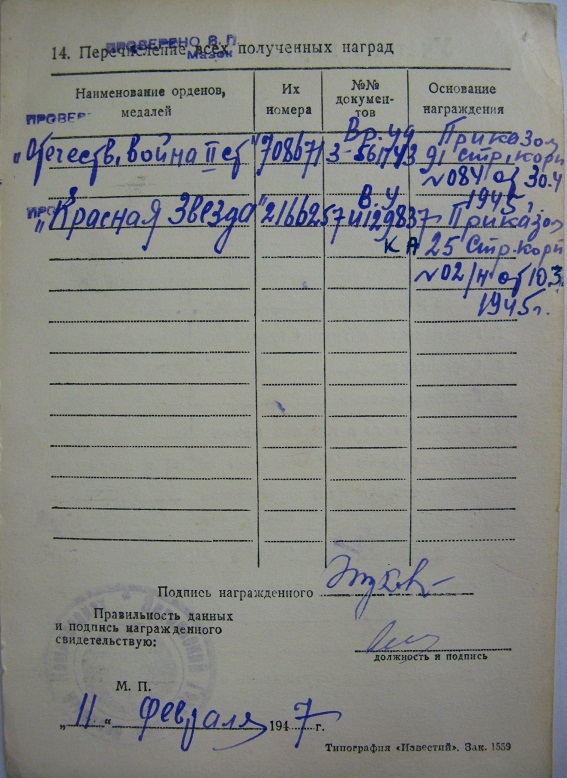 ПРОВЕРЕНО В П
Мазок
14. Перечисление всех полученных наград
Наименование орденов, медалей
Их номера
№№ докумен-тов
Основание награждения
ПРОВЕР
"Отечеств. война II ст" 708671 Вр. уд З-561743 Приказом 91 стр. корп
№084 от 30.4
1945 г.
ПРО
"Красная Звезда" 2166257 В.У И129837 Приказом
КА 25 Стр. корп
№02/н от 10.3.
1945г.
Подпись награжденного
Правильность данных
и подпись награжденного
свидетельствую:
должность и подпись
М. П.
„11“ февраля 1947 г.
Типография «Известий». Зак. 1559